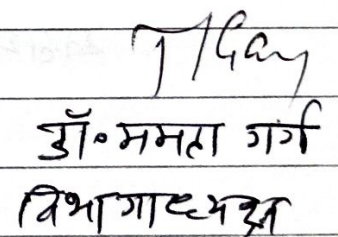 डॉ॰ ममता गर्ग
विभागाध्यक्ष